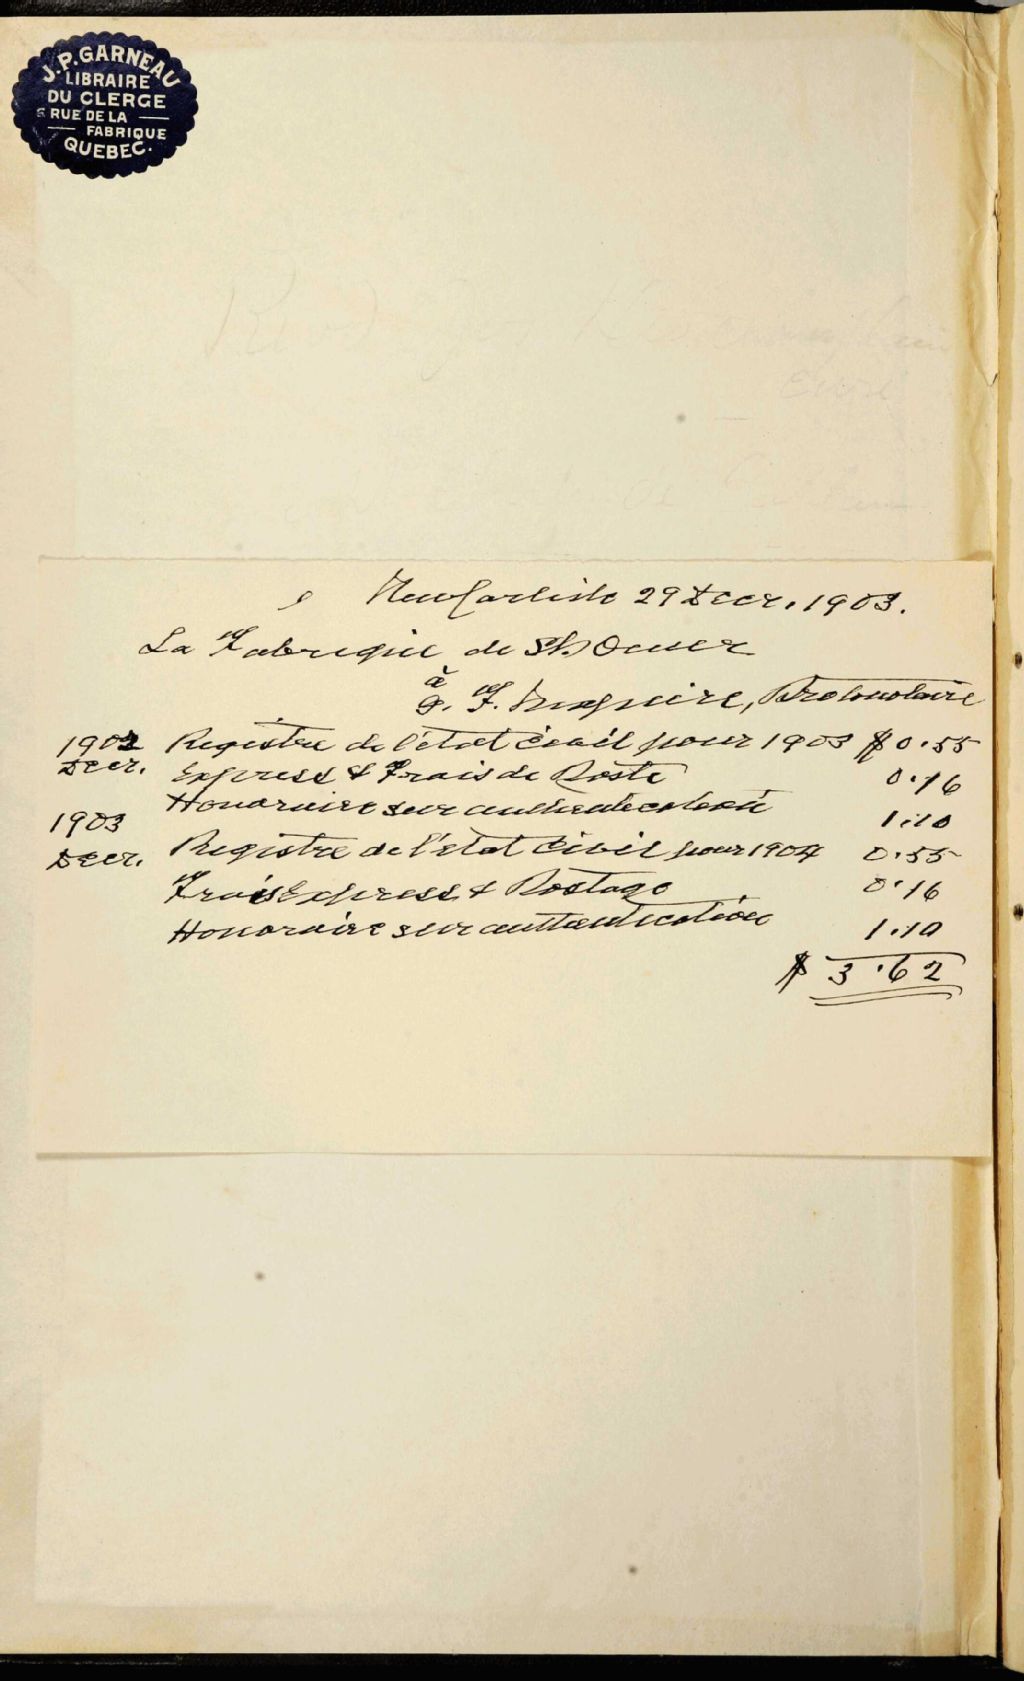 J.P. GARNEAU
LIBRAIRE
DU CLERGE
6 RUE DE LA
FABRIQUE
QUEBEC.
New Carlisle 29 Decr. 1903.
La Fabrique de St. Omer
à
J. F. Maguire, Protonotaire
1902 Registre de l'état civil pour 1903 $ 0.55
Decr. Express & Frais de Poste 0.16
Honoraire sur authentication 1.10
1903
Decr. Registre de l'état civil pour 1904 0.55
Frais Express & Postage 0.16
Honoraire sur authentication 1.10
$ 3.62